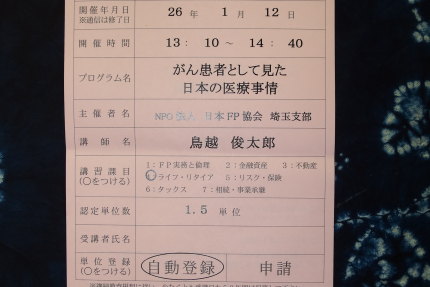 開催年月日 26 年 1 月 12 日
※通信は修了日
開催時間 13: 10 ～ 14: 40
プログラム名 がん患者として見た
日本の医療事情
主催者名 NPO法人 日本FP協会 埼玉支部
講師名 鳥越 俊太郎
講習課目 1：FP実務と倫理 2：金融資産 3：不動産
(○をつける) ライフ・リタイア 5：リスク・保険
6：タックス 7：相続・事業承継
認定単位数 1.5 単位
受講者氏名
単位登録 自動登録 申請
(○をつける)